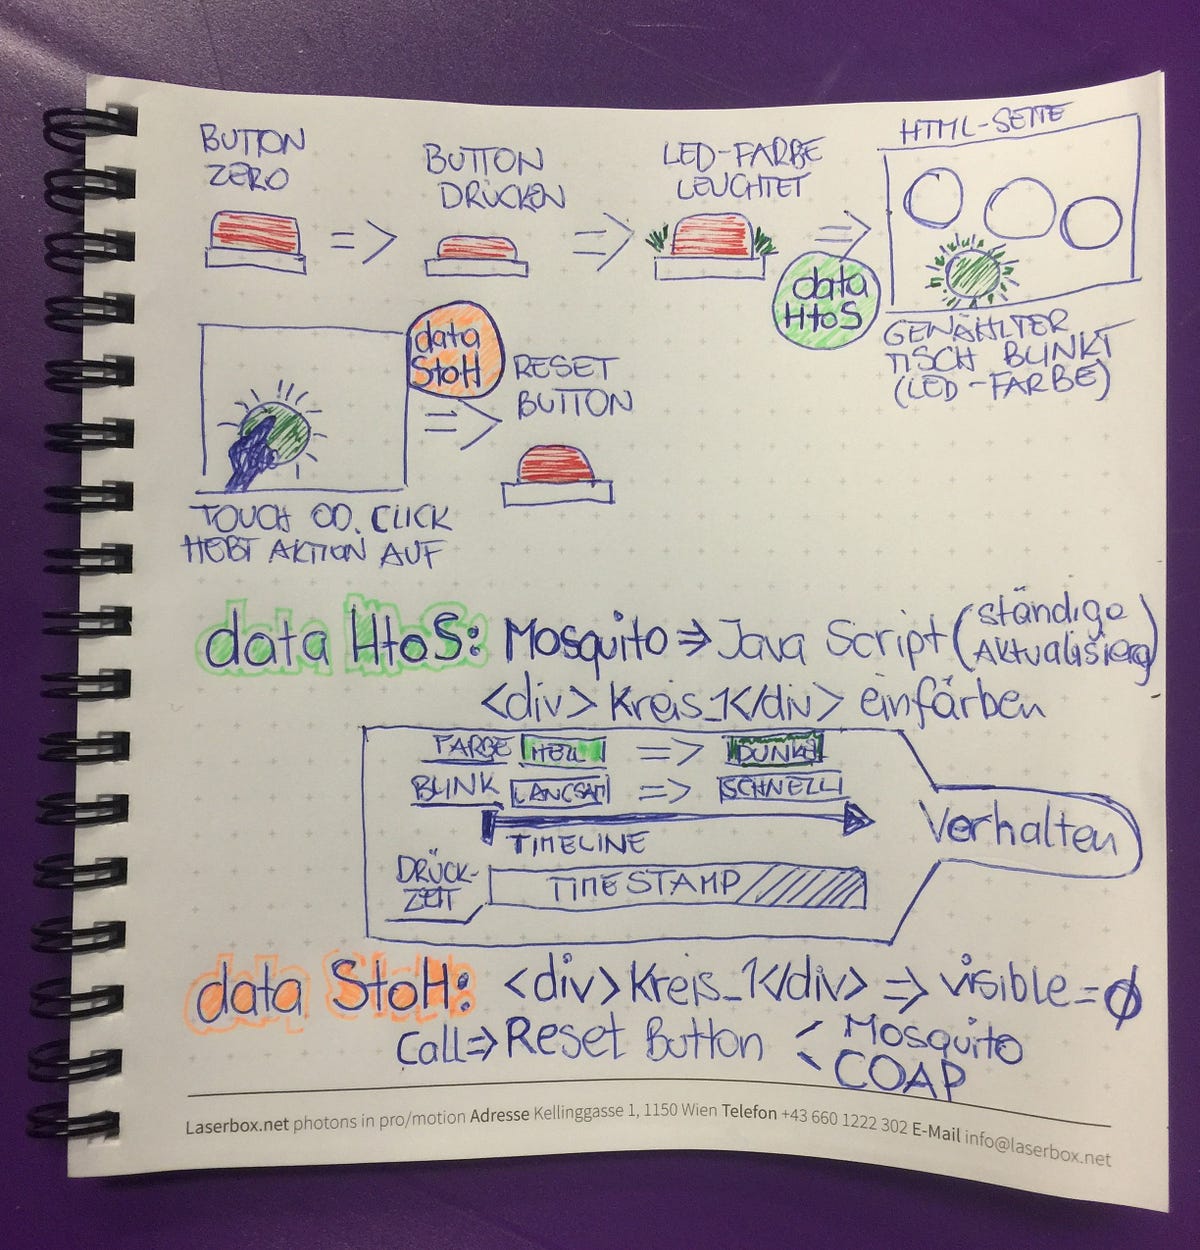 BUTTON
ZERO
BUTTON
DRÜCKEN
LED-FARBE
LEUCHTET
HTML-SEITE
data
HtoS
GEWÄHLTER
TISCH BLINKT
(LED-FARBE)
data
StoH
RESET
BUTTON
TOUCH OD. CLICK
HEBT AKTION AUF
data HtoS: Mosquito => Java Script (ständige
Aktualisierg)
<div> Kreis_1</div> einfärben
FARBE HELL => DUNKEL
BLINK LANGSAM => SCHNELL
TIMELINE
DRÜCK-
ZEIT
TIMESTAMP
Verhalten
data StoH: <div>Kreis_1</div> => visible=0
Call=> Reset Button < Mosquito
COAP
Laserbox.net photons in pro/motion Adresse Kellinggasse 1, 1150 Wien Telefon +43 660 1222 302 E-Mail info@laserbox.net